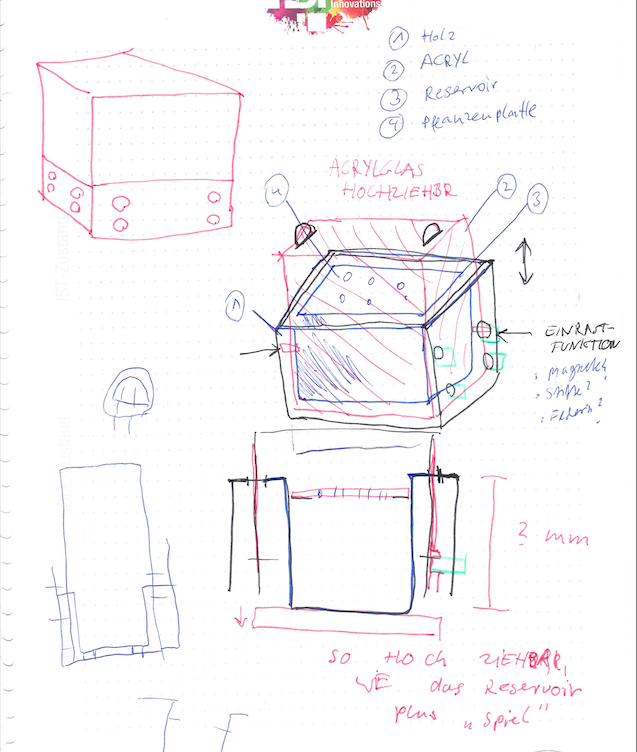 Innovations
① Holz
② ACRYL
③ Reservoir
④ Pflanzenplatte
ACRYLGLAS
HOCHZIEHBR
4
2
3
1
EINRAST-
FUNKTION
Stifte?
? mm
SO HOCH ZIEHBAR,
WIE das Reservoir
plus „Spiel"